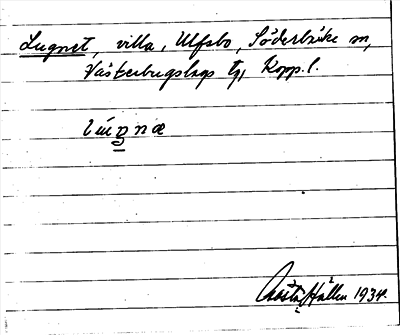 Lugnet, villa, Ulfsbo, Söderbärke sn,
Västerbergslags tg, Kopp. l.
lúŋnæ
Gösta Hallén 1934.